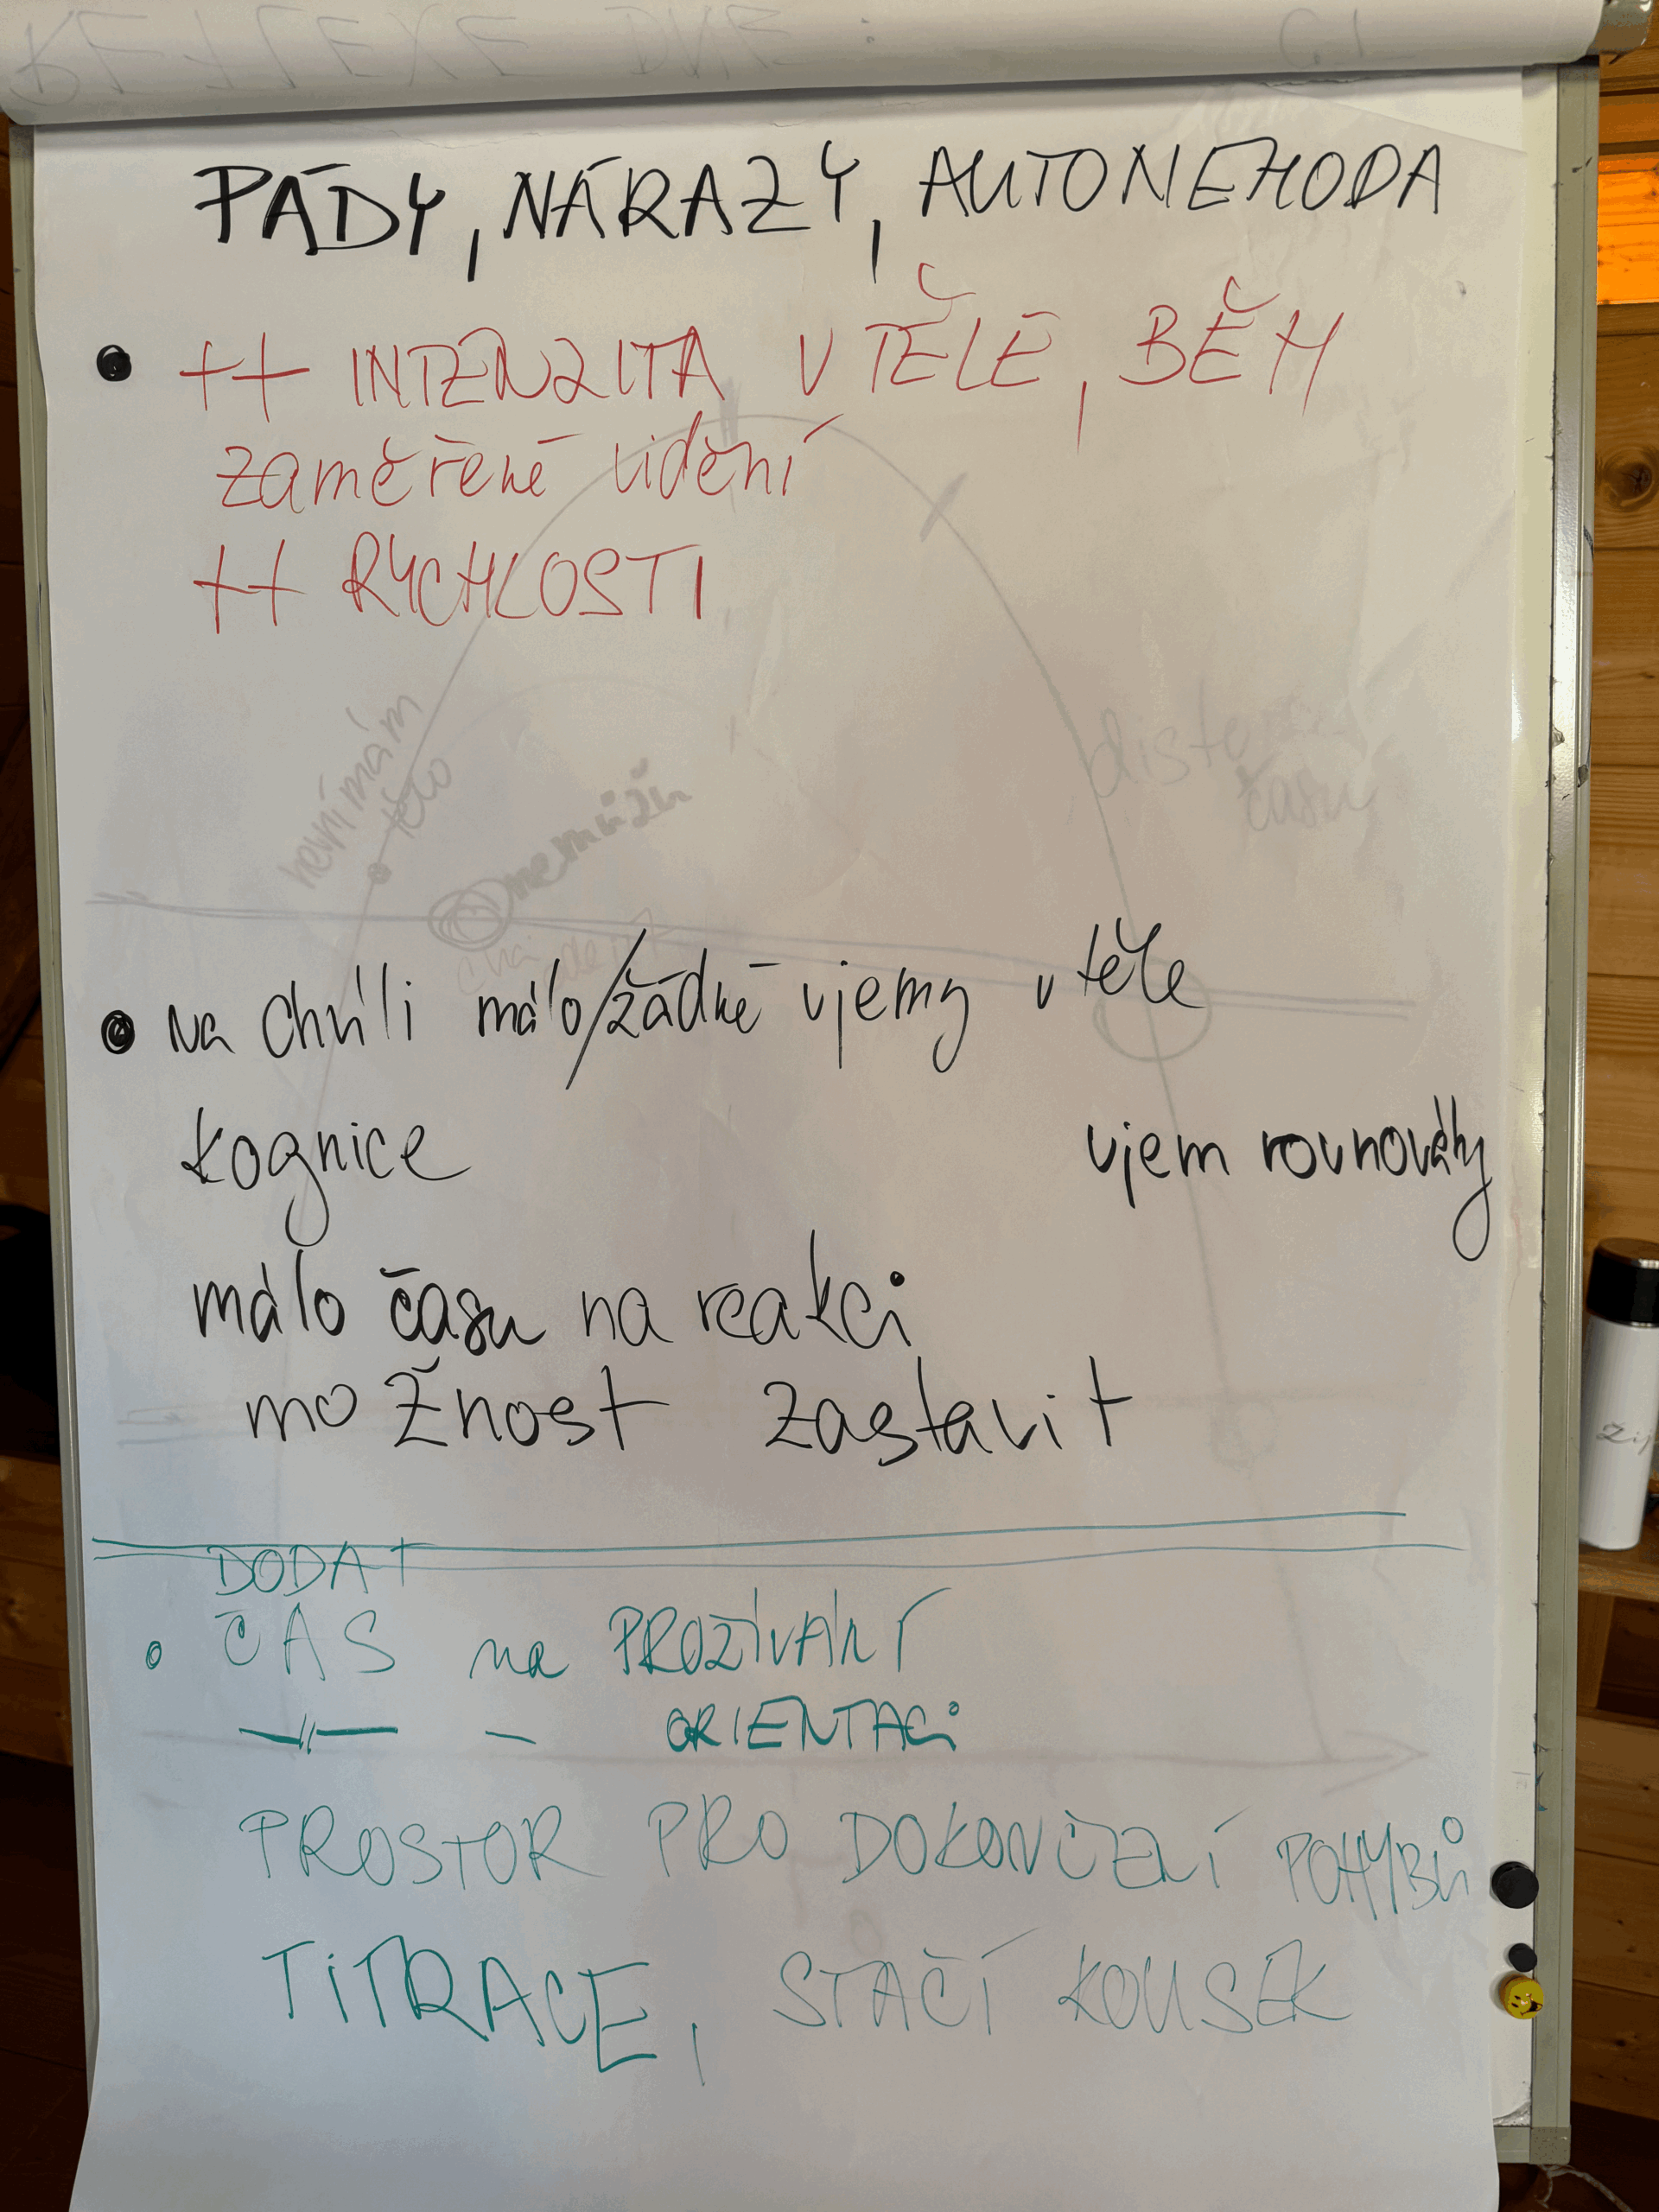 REFLEXE DNE :
PÁDY, NÁRAZY, AUTONEHODA
• ++ INTENZITA V TĚLE, BĚH
zaměřené vidění
++ RYCHLOSTI
nevnímám
tělo
nemůžu
času
• na chvíli málo/žádné vjemy v těle
kognice vjem rovnováhy
málo času na reakci
možnost zastavit
DODAT
• ČAS na PROŽÍVÁNÍ
—||— — ORIENTACI
PROSTOR PRO DOKONČENÍ POHYBŮ
TITRACE, STAČÍ KOUSEK